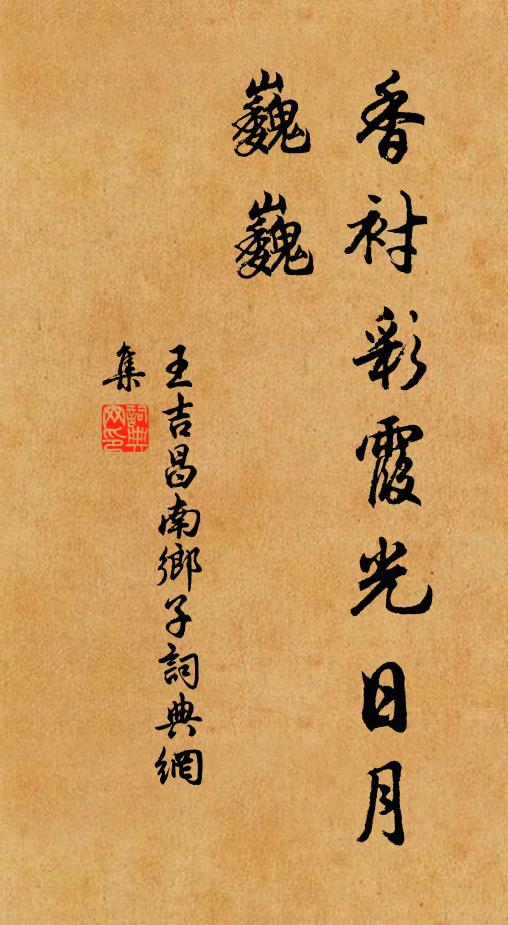 香衬彩霞光日月
巍巍
王吉昌南鄉子詞典網
集
詞典
网印